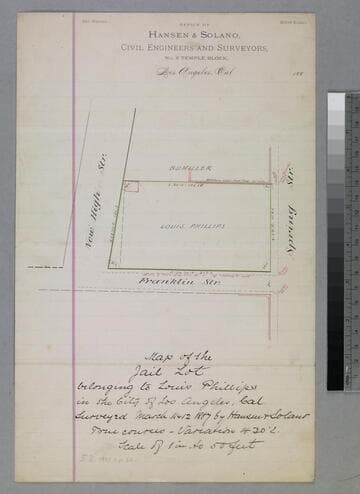 OFFICE OF
HANSEN & SOLANO,
CIVIL ENGINEERS AND SURVEYORS,
TEMPLE BLOCK,
Los Angeles, Cal 188
New High Str.
BUHULLER
LOUIS PHILLIPS
Spring Str
Franklin Str.
Map of the
Jail Lot
belonging to Louis Phillips
in the City of Los Angeles, Cal
Surveyed March 11&12 1887 by Hansen & Solano
True courses - Variation 14°30' E.
Scale of 1 in to 50 feet